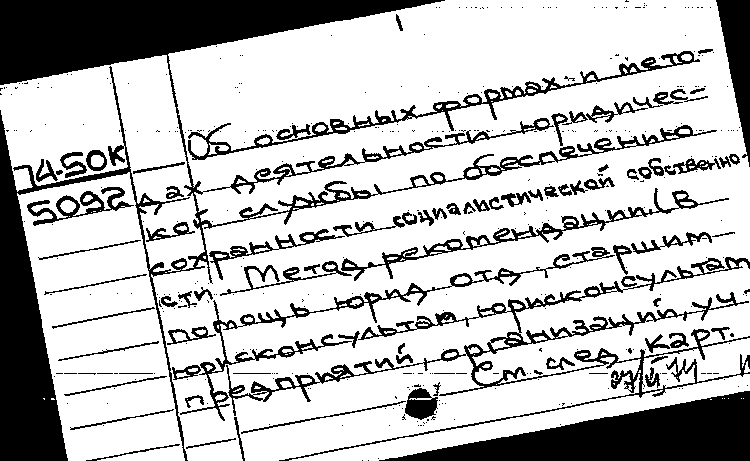 Об основных формах и мето-
74-50к
дах деятельности юридичес-
5092
кой службы по обеспечению
сохранности социалистической собственно-
сти. Метод. рекомендации. (В
помощь юрид. отд., старшим
юрисконсультам, юрисконсультам
предприятий, организаций, уч.-
См. след. карт.